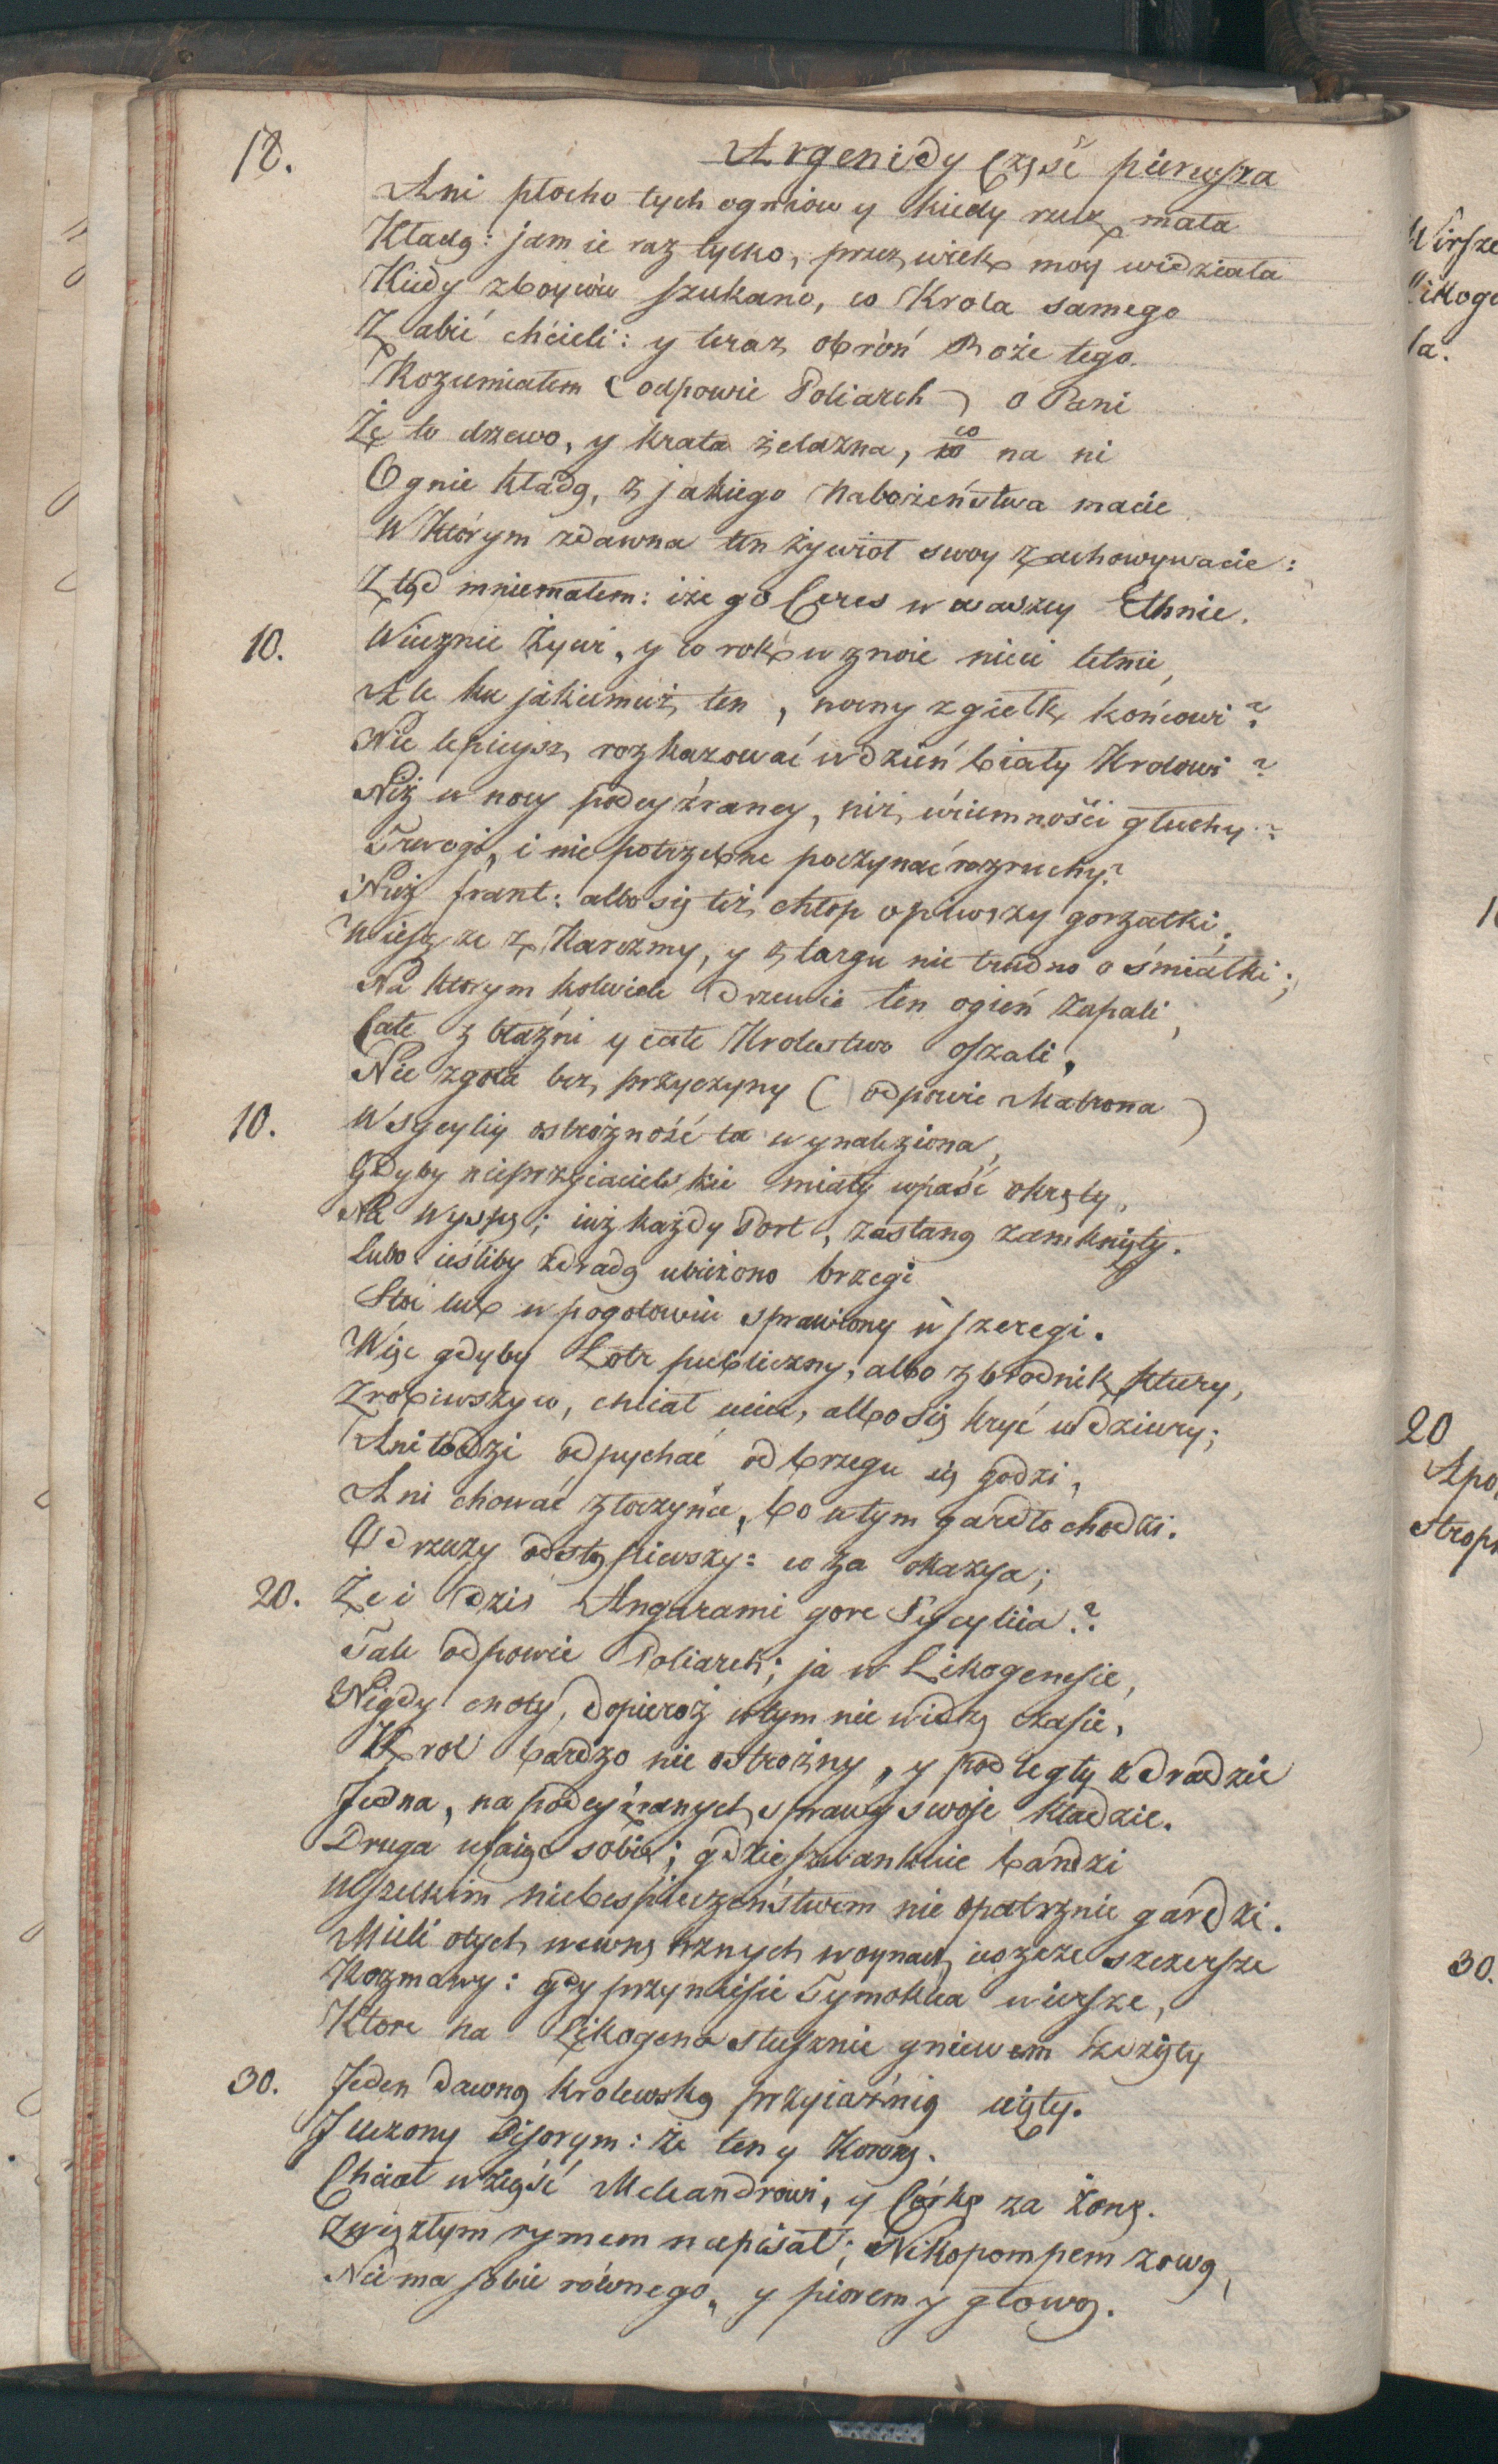 18.
Argenidy Część pierwsza
Ani płocho tych ogniow y kiedy rzecz mała
Kładą: jam ie raz tylko, przez wiek moy widziała
Kiedy zboycow szukano, co Krola samego
Zabić chcieli: y teraz obróń Boże tego.
Rozumiałem (odpowie Poliarch) o Pani
Że to drzewo, y krata żelazna, co na ni
Ognie kładą, z jakiego Nabożeństwa macie
W którym zdawna ten żywioł swoy zachowywacie:
Ztąd mniemałem: iże go Ceres w waszey Ethnie.
10. Wiecznie żywi, y co rok w znoie nieci letnie,
Ale ku jakiemuż ten, nocny zgiełk końcowi?
Nie lepieysz rozkazować w dzień biały Krolowi?
Niż w nocy podeyźraney, niż w ciemności głuchy?
Trwogi, i nie potrzebne poczynać rozruchy?
Nuż frant: albo się też chłop opiwszy gorzałki,
Wiesz ze z Karczmy, y z targu nie trudno o śmiałki;
Na ktorym kolwiek drzewie ten ogień zapali,
Całe z błaźni y całe Krolestwo oszali,
Nie zgoła bez przyczyny (odpowie Matrona)
10. W Sycyliy ostrożność ta wynaleziona,
Gdyby nieprzyiacielskie miały wpaść okręty,
Na Wyspę; iuż każdy Port, zastaną zamknięty.
Lubo ieśliby zdradą ubieżono brzegi
Stoi lub w pogotowiu sprawiony w szeregi.
Więc gdyby Łotr publiczny, albo zbrodnik ktury,
Zrobiwszy co, chciał uciec, albo się kryć w dziury;
Ani łodzi odpychać od brzegu się godzi,
Ani chować złoczyńce, bo w tym gardło chodzi.
Od rzeczy odstąpiewszy: co za okazya;
20. Że i dzis Angarami gore Sycyliia??
Tak odpowie Poliarch; ja w Likogenesie,
Nigdy cnoty, dopieroż w tym nie widzę czasie,
Krol bardzo nie ostrożny, y podległy zdradzie
Jedna, na podeyźranych sprawy swoje kładzie.
Druga ufaiąc sobie; gdzie szwankuie bardzi
Wszelkim niebespieczeństwem nie opatrznie gardzi.
Mieli o tych wewnętrznych woynach ieszcze szczersze
Rozmowy: gdy przyniesie Tymoklea wiersze,
Ktore na Likogena słusznie gniewem zdzięty
30. Jeden dawną krolewską przyiaźnią uięty.
Juczony Disorym: że ten y Koronę.
Chciał wziąść Meleandrowi, y Córkę za żonę.
Zwięzłym rymem napisał; Nikopompem zową,
Niema sobie równego, y piorem y głową.